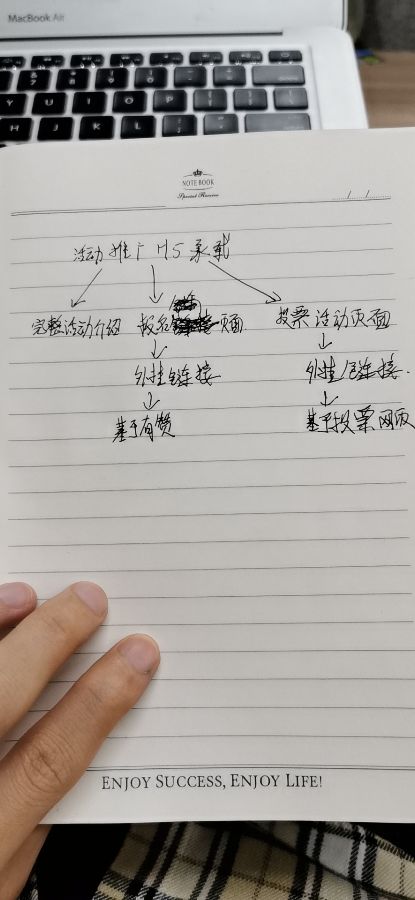 MacBook Air
Y U I O P
H J K L
NOTE BOOK
Special Receive
活动推广 H5 承载
完整活动介绍 报名页面 投票活动页面
外挂链接 外挂链接
基于有赞 基于投票网页
ENJOY SUCCESS, ENJOY LIFE!